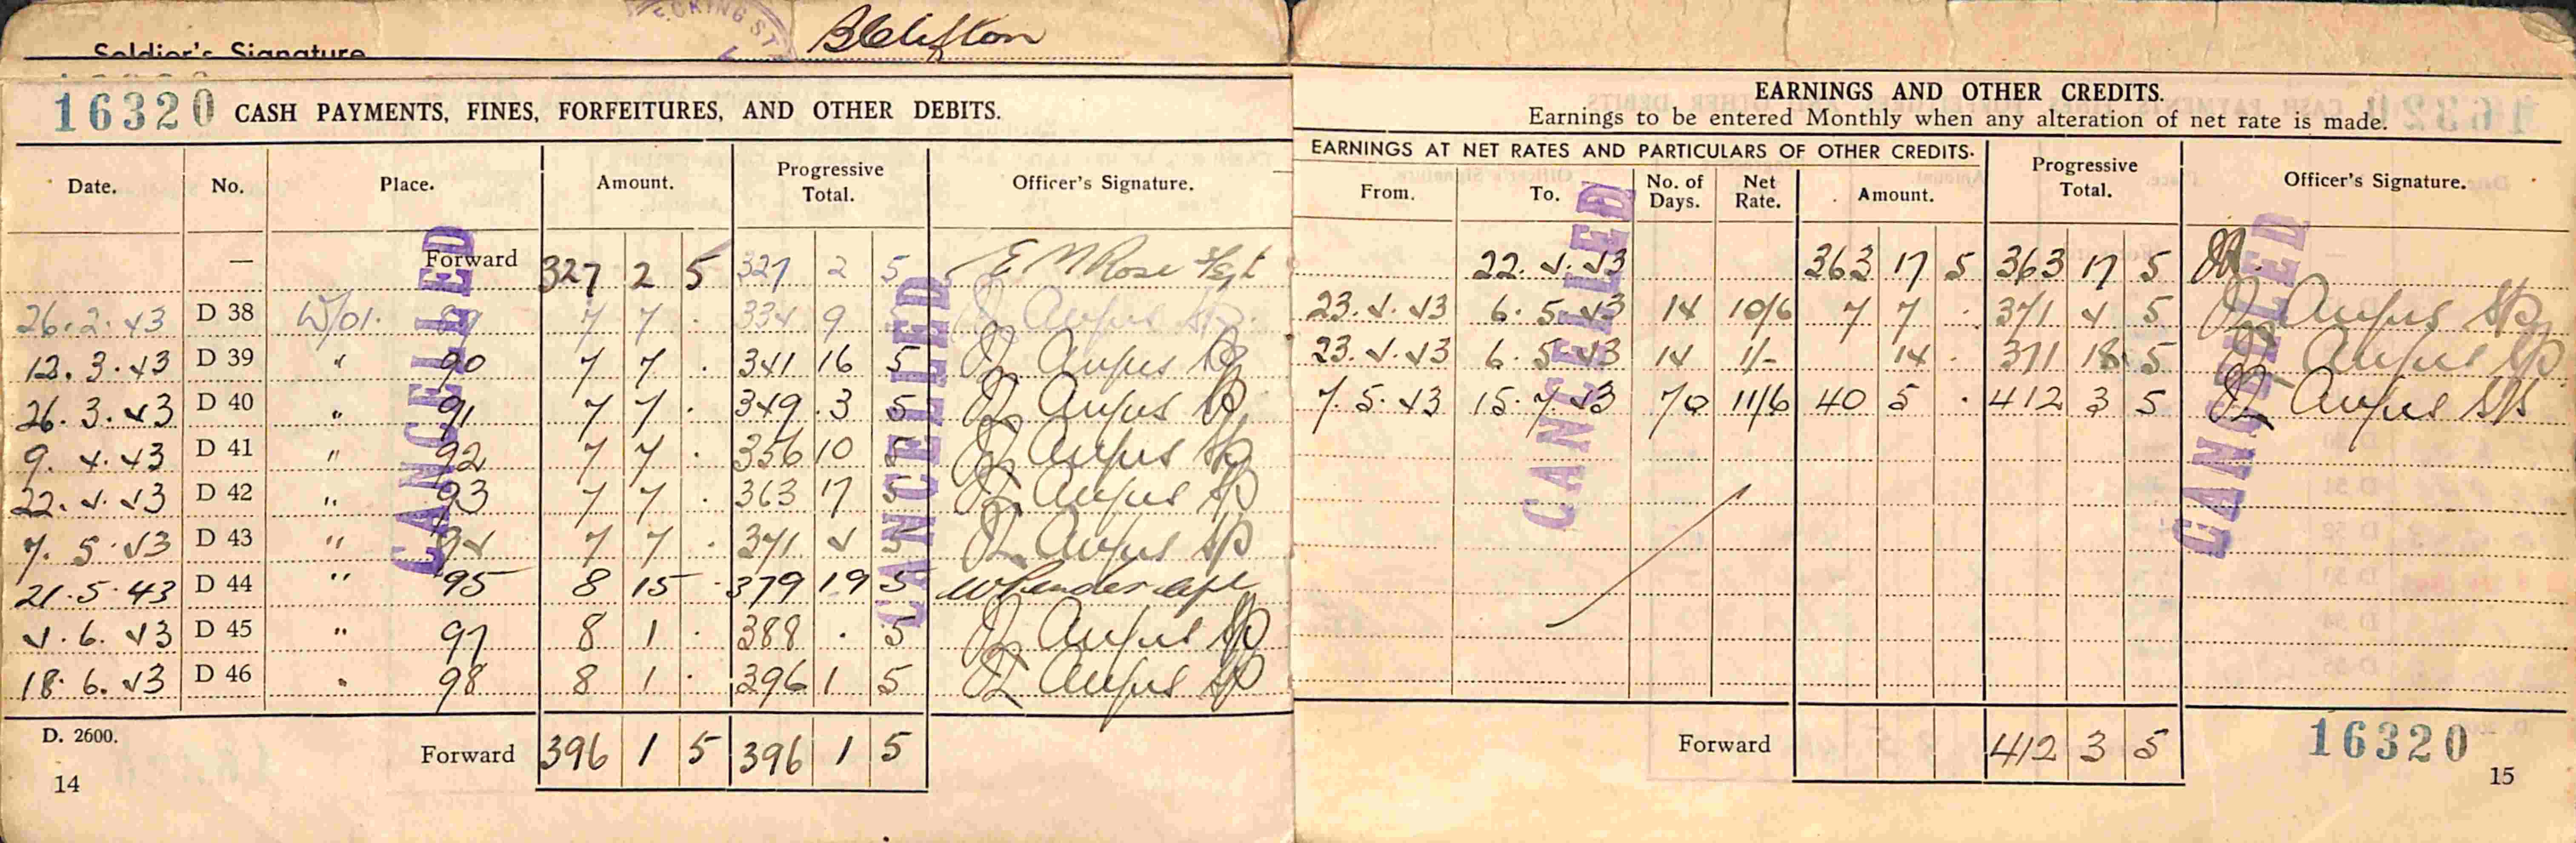 Soldier's Signature BClifton
16320 CASH PAYMENTS, FINES, FORFEITURES, AND OTHER DEBITS.
Date. No. Place. Amount. Progressive Total. Officer's Signature.
— Forward 327 2 5 327 2 5 E M Rose S/Sgt
26.2.43 D 38 W/01. 7 7 . 334 9
12.3.43 D 39 " 90 7 7 . 341 16 5
26.3.43 D 40 " 91 7 7 . 349 3 5
9.4.43 D 41 " 92 7 7 . 356 10 5
22.4.43 D 42 " 93 7 7 . 363 17 5
7.5.43 D 43 " 94 7 7 . 371 4 5
21.5.43 D 44 " 95 8 15 . 379 19 5
4.6.43 D 45 " 97 8 1 . 388 . 5
18.6.43 D 46 " 98 8 1 . 396 1 5
CANCELLED
CANCELLED
D. 2600.
Forward 396 1 5 396 1 5
14
EARNINGS AND OTHER CREDITS.
Earnings to be entered Monthly when any alteration of net rate is made.
16320
EARNINGS AT NET RATES AND PARTICULARS OF OTHER CREDITS.
From. To. No. of Days. Net Rate. Amount. Progressive Total. Officer's Signature.
22.4.43 363 17 5 363 17 5
23.4.43 6.5.43 14 10/6 7 7 . 371 4 5
23.4.43 6.5.43 14 1/- 14 . 371 18 5
7.5.43 15.7.43 70 11/6 40 5 . 412 3 5
CANCELLED
CANCELLED
Forward 412 3 5
16320
15